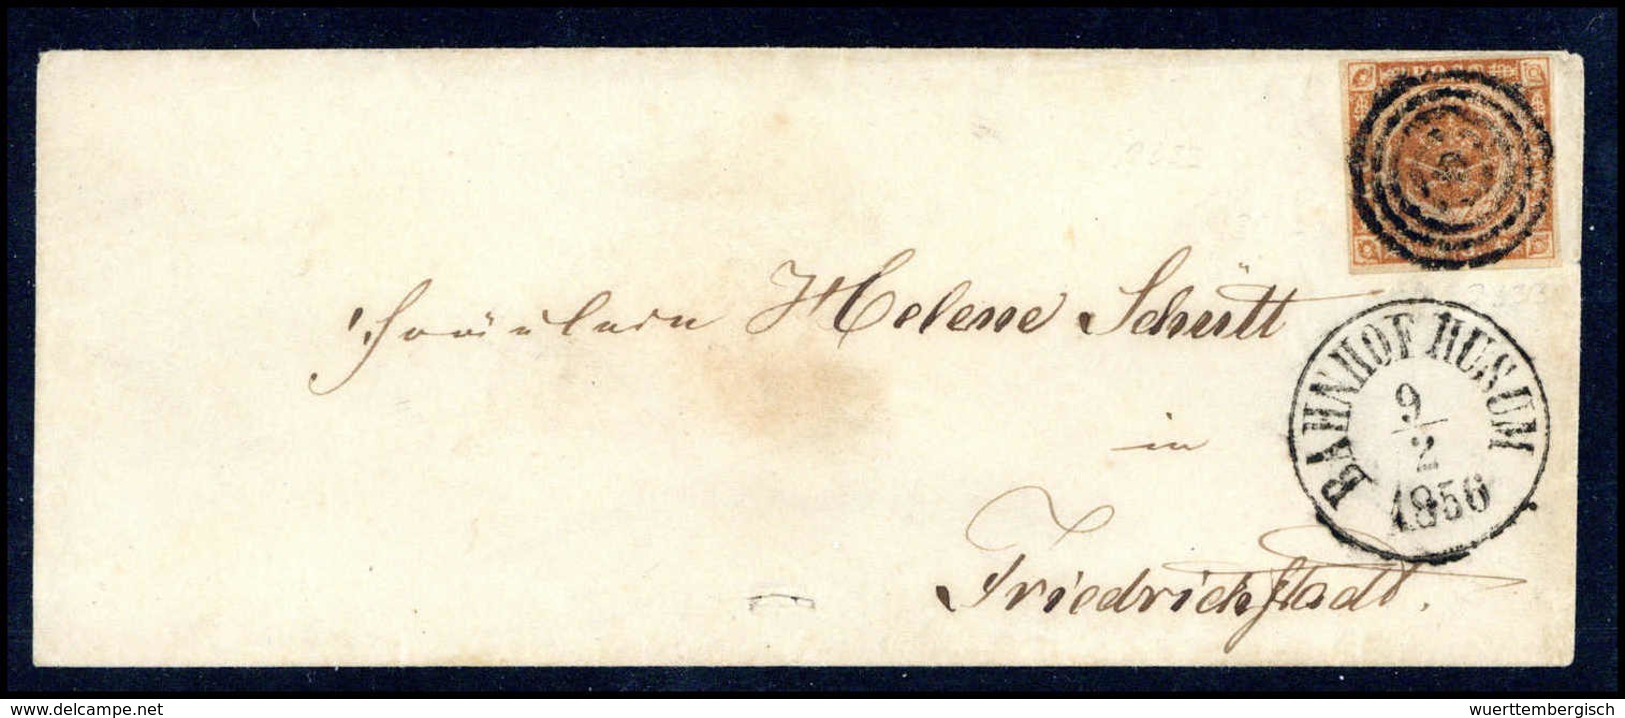 Fräulein Helene Schütt
in
Friedrichstadt.
BAHNHOF HUSUM
9/2
1856
www.delcampe.net
wuerttembergisch